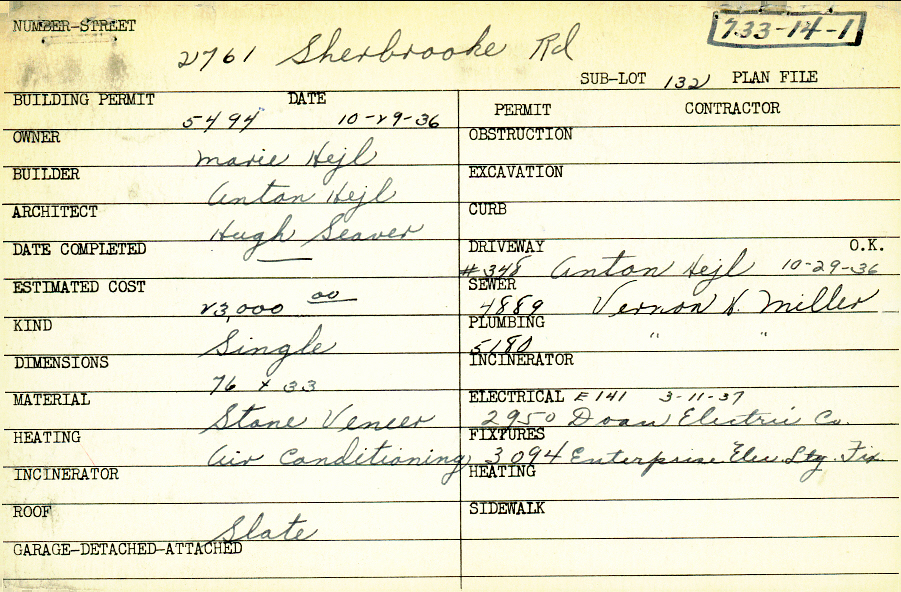 NUMBER-STREET
733-14-1
2761 Sherbrooke Rd
SUB-LOT 132 PLAN FILE
BUILDING PERMIT DATE
5494 10-29-36
OWNER
Marie Hejl
BUILDER
Anton Hejl
ARCHITECT
Hugh Seaver
DATE COMPLETED
—
ESTIMATED COST
23,000 00
KIND
Single
DIMENSIONS
76 x 33
MATERIAL
Stone Veneer
HEATING
Air Conditioning
INCINERATOR
ROOF
Slate
GARAGE-DETACHED-ATTACHED
PERMIT CONTRACTOR
OBSTRUCTION
EXCAVATION
CURB
DRIVEWAY O.K.
#348 Anton Hejl 10-29-36
SEWER
4889 Vernon H. Miller
PLUMBING
5180 " "
INCINERATOR
ELECTRICAL E141 3-11-37
2950 Doan Electric Co.
FIXTURES
3094 Enterprise Elec. Ltg. Fix.
HEATING
SIDEWALK